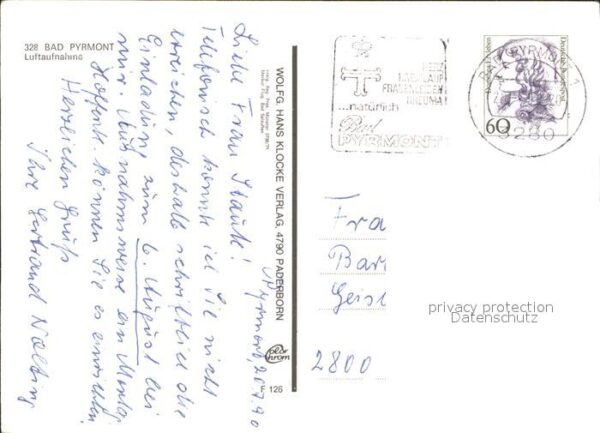 328 BAD PYRMONT
Luftaufnahme
Pyrmont, 20.7.90
Liebe Frau Staub!
Telefonisch konnte ich Sie nicht
erreichen, deshalb schriftlich die
Einladung zum 6. August bei
mir. Ausnahmsweise ein Montag
Hoffentl. können Sie es einrichten.
Herzlichen Gruß
Ihre
WOLFG. HANS KLOCKE VERLAG, 4790 PADERBORN
126
HERZ
FRAUENLEIDEN
RHEUMA
...natürlich
Bad
PYRMONT
BAD PYRMONT 1
3280
Deutsche Bundespost
60
Fra
Bar
Geist
2800
privacy protection
Datenschutz